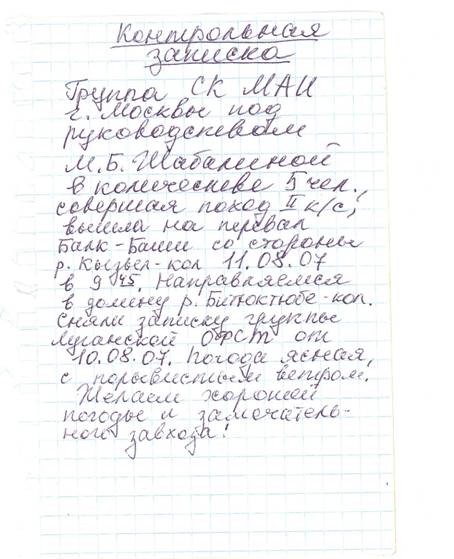 Контрольная
записка
Группа СК МАИ
г. Москвы под
руководством
М.Б. Шабалиной
в количестве 5 чел.,
совершая поход II к/с,
вышла на перевал
Балк-Баши со стороны
р. Кызыл-кол 11.08.07
в 9 45. Направляемся
в долину р. Битюктюбе-кол.
Сняли записку группы
Луганской ОФСТ от
10.08.07. Погода ясная,
с порывистым ветром.
Желаем хорошей
погоды и замечатель-
ного завхоза!